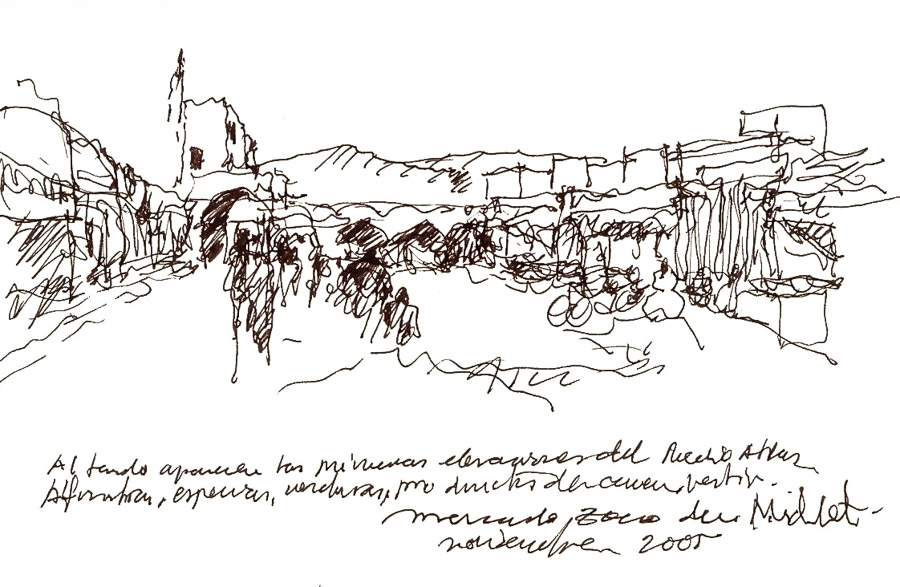 Al fondo aparecen las primeras elevaciones del Medio Atlas.
Alfombras, especias, verduras, productos de cuero, vestir.
mercado, zoco de Midelt.
noviembre 2005